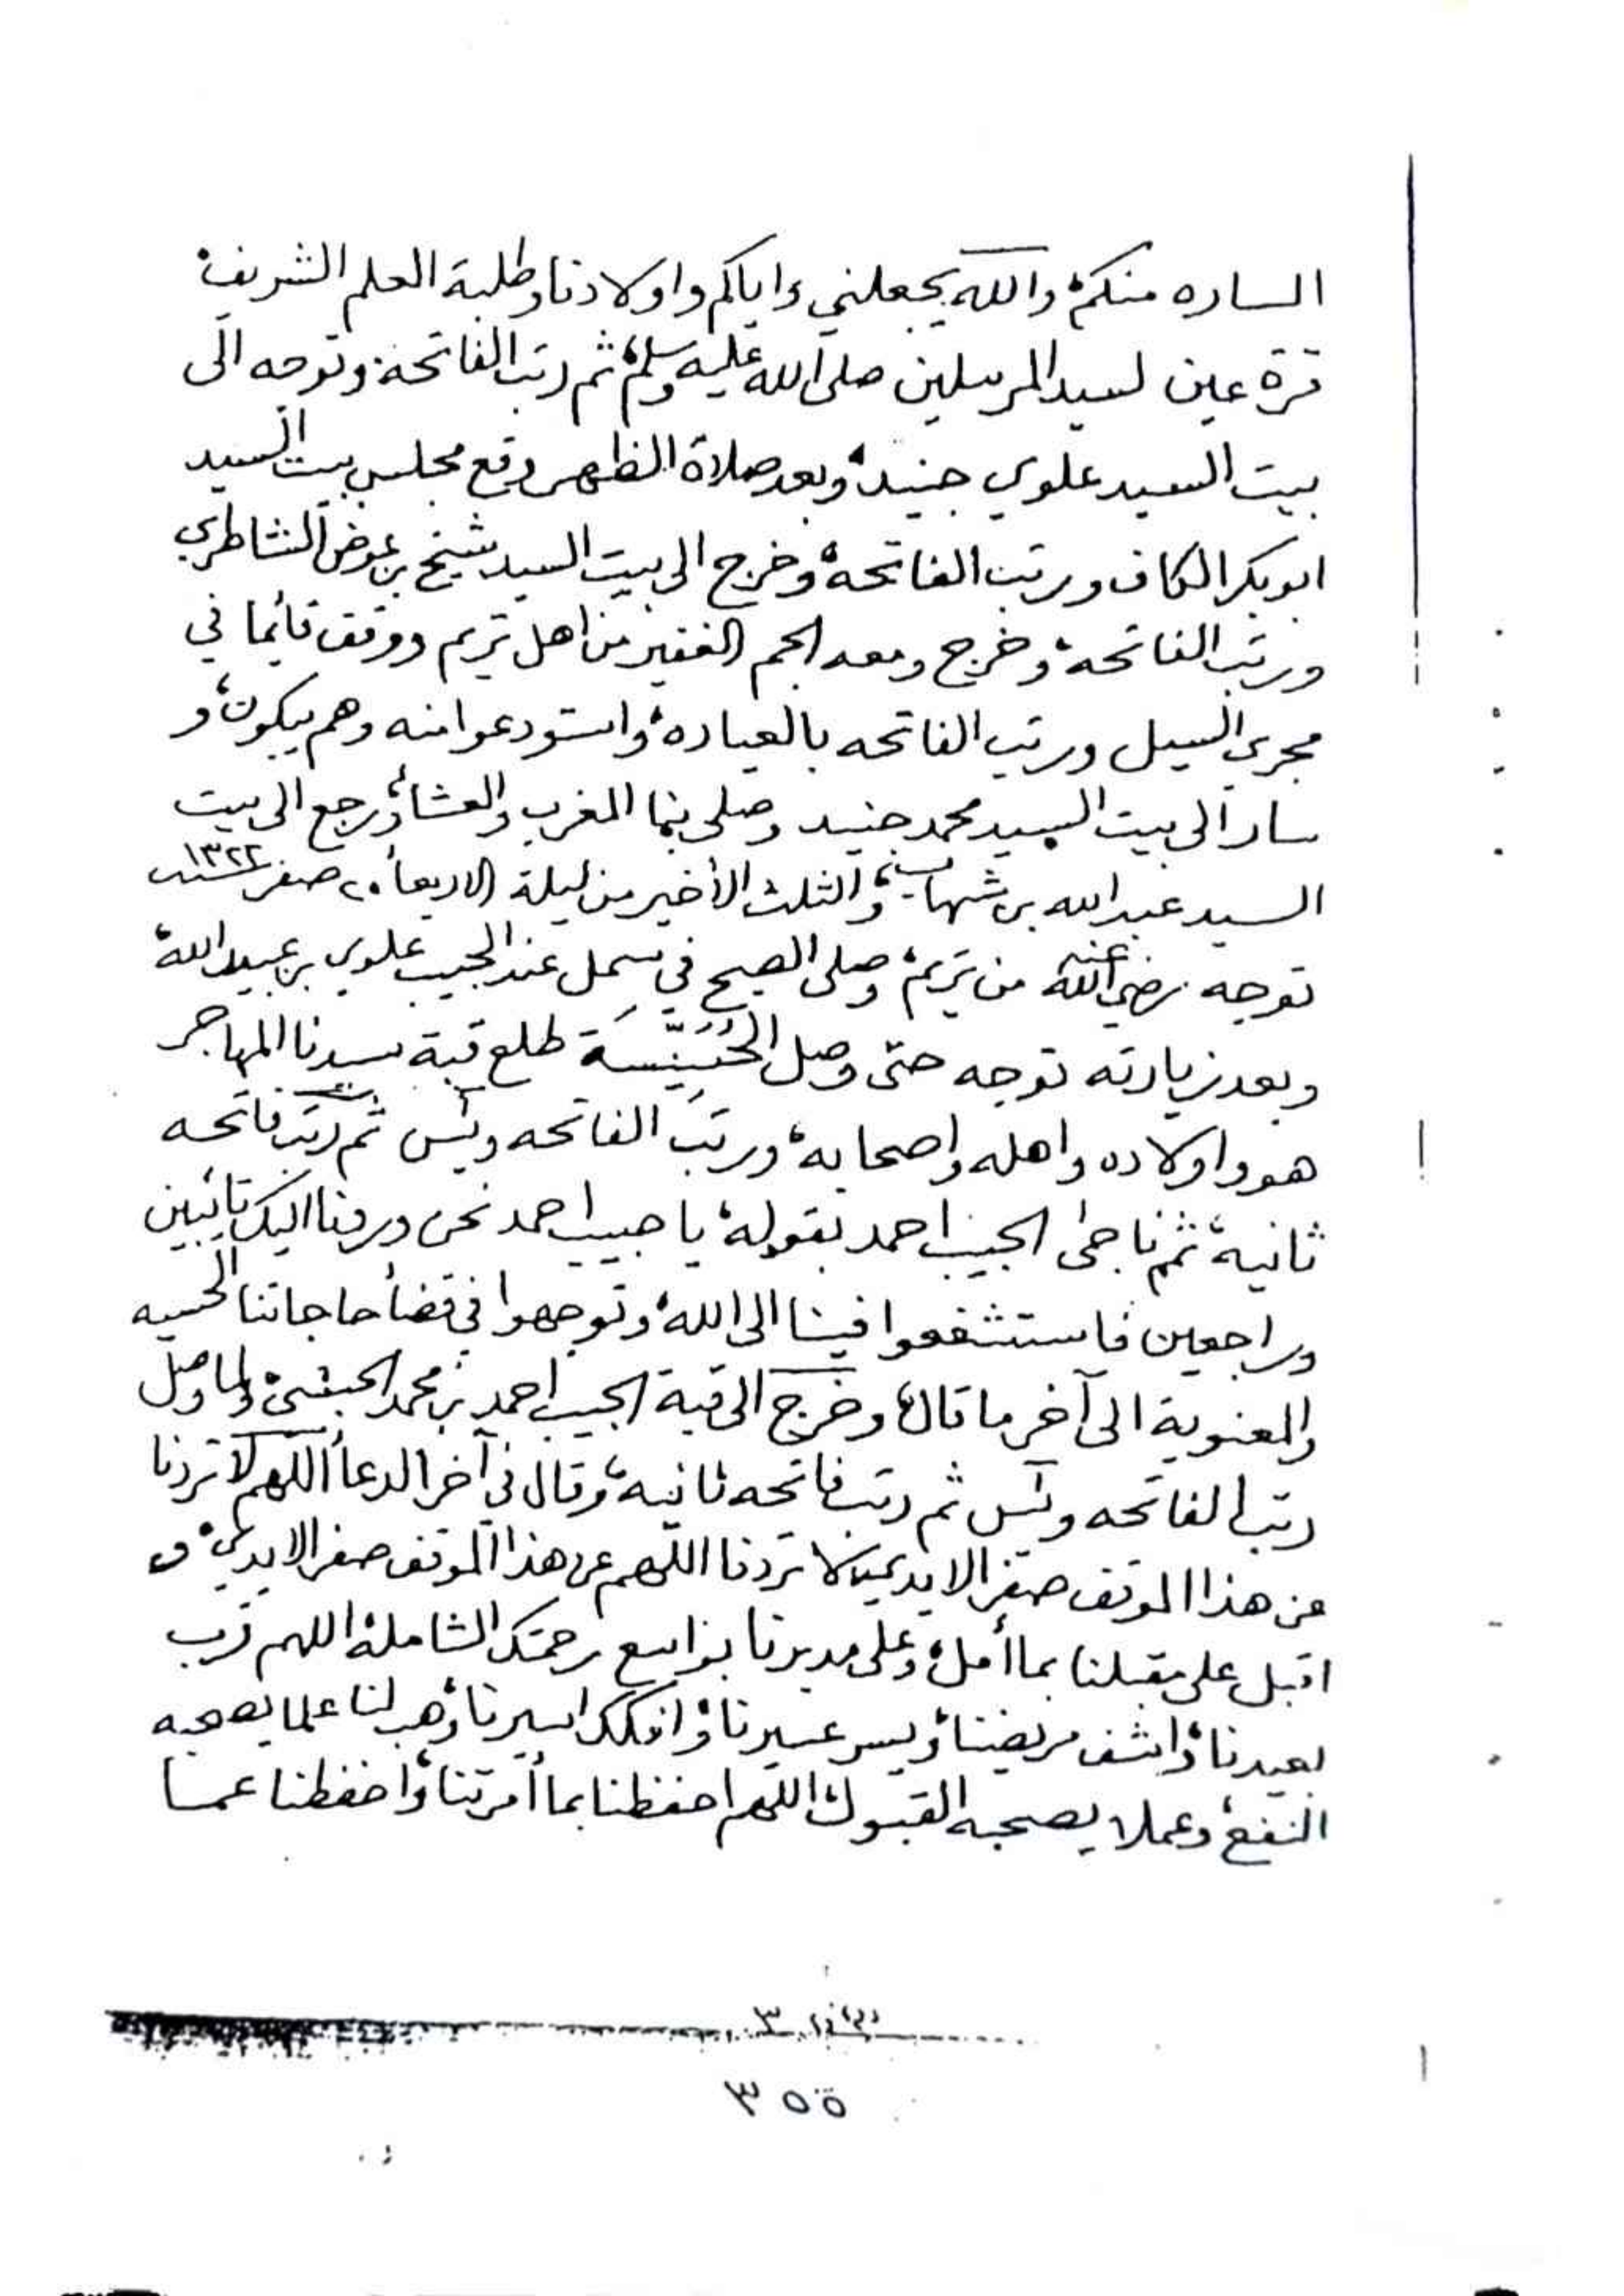 الساره منكم، والله يجعلني واياكم واولادنا وطلبة العلم الشريف،
قرة عين لسيد المرسلين صلى الله عليه وسلم، ثم رتب الفاتحة، وتوجه الى
بيت السيد علوي جنيد، وبعد صلاة الظهر وقع مجلس بيت السيد
ابوبكر الكاف ورتب الفاتحة، وخرج الى بيت السيد شيخ بن عوض الشاطري
ورتب الفاتحة، وخرج ومعه الجم الغفير من اهل تريم ووقف قائما في
مجرى السيل ورتب الفاتحه بالعباره، واستودعوا منه وهم يبكون، و
سار الى بيت السيد محمد جنيد وصلى بنا المغرب والعشاء، ورجع الى بيت
السيد عبد الله بن شهاب، والثلث الأخير من ليلة الاربعاء ٢٠ صفر سنة ١٣٢٢
توجه رضي الله عنه من تريم، وصلى الصبح في سمل عند الحبيب علوي بن عبيد الله،
وبعد زيارته توجه حتى وصل الحُسَيِّسَة طلع قبة سيدنا المهاجر
هو واولاده واهله واصحابه، ورتب الفاتحه ويس ثم رتب فاتحه
ثانية، ثم ناجى الحبيب احمد بقوله، يا حبيب احمد نحن وردنا اليك تائبين
وراجعين فاستشفعوا فينا الى الله، وتوجهوا في قضاء حاجاتنا الحسيه
والمعنوية الى آخر ما قال، وخرج الى قبة الحبيب احمد بن محمد الحبشي، ولما وصل
رتب الفاتحه ويس ثم رتب فاتحه ثانيه، وقال في آخر الدعاء اللهم لا تردنا
عن هذا الموقف صفر الايدي، لا تردنا اللهم عن هذا الموقف صفر الايدي، و
اقبل على مقبلنا بما أمل، وعلى مدبرنا بواسع رحمتك الشاملة، اللهم قرب
بعيدنا، واشف مريضنا، ويسر عسيرنا، وافكك اسيرنا، وهب لنا علما يصحبه
النفع، وعملا يصحبه القبول، اللهم احفظنا بما أمرتنا، واحفظنا عمسا
٣٥٥